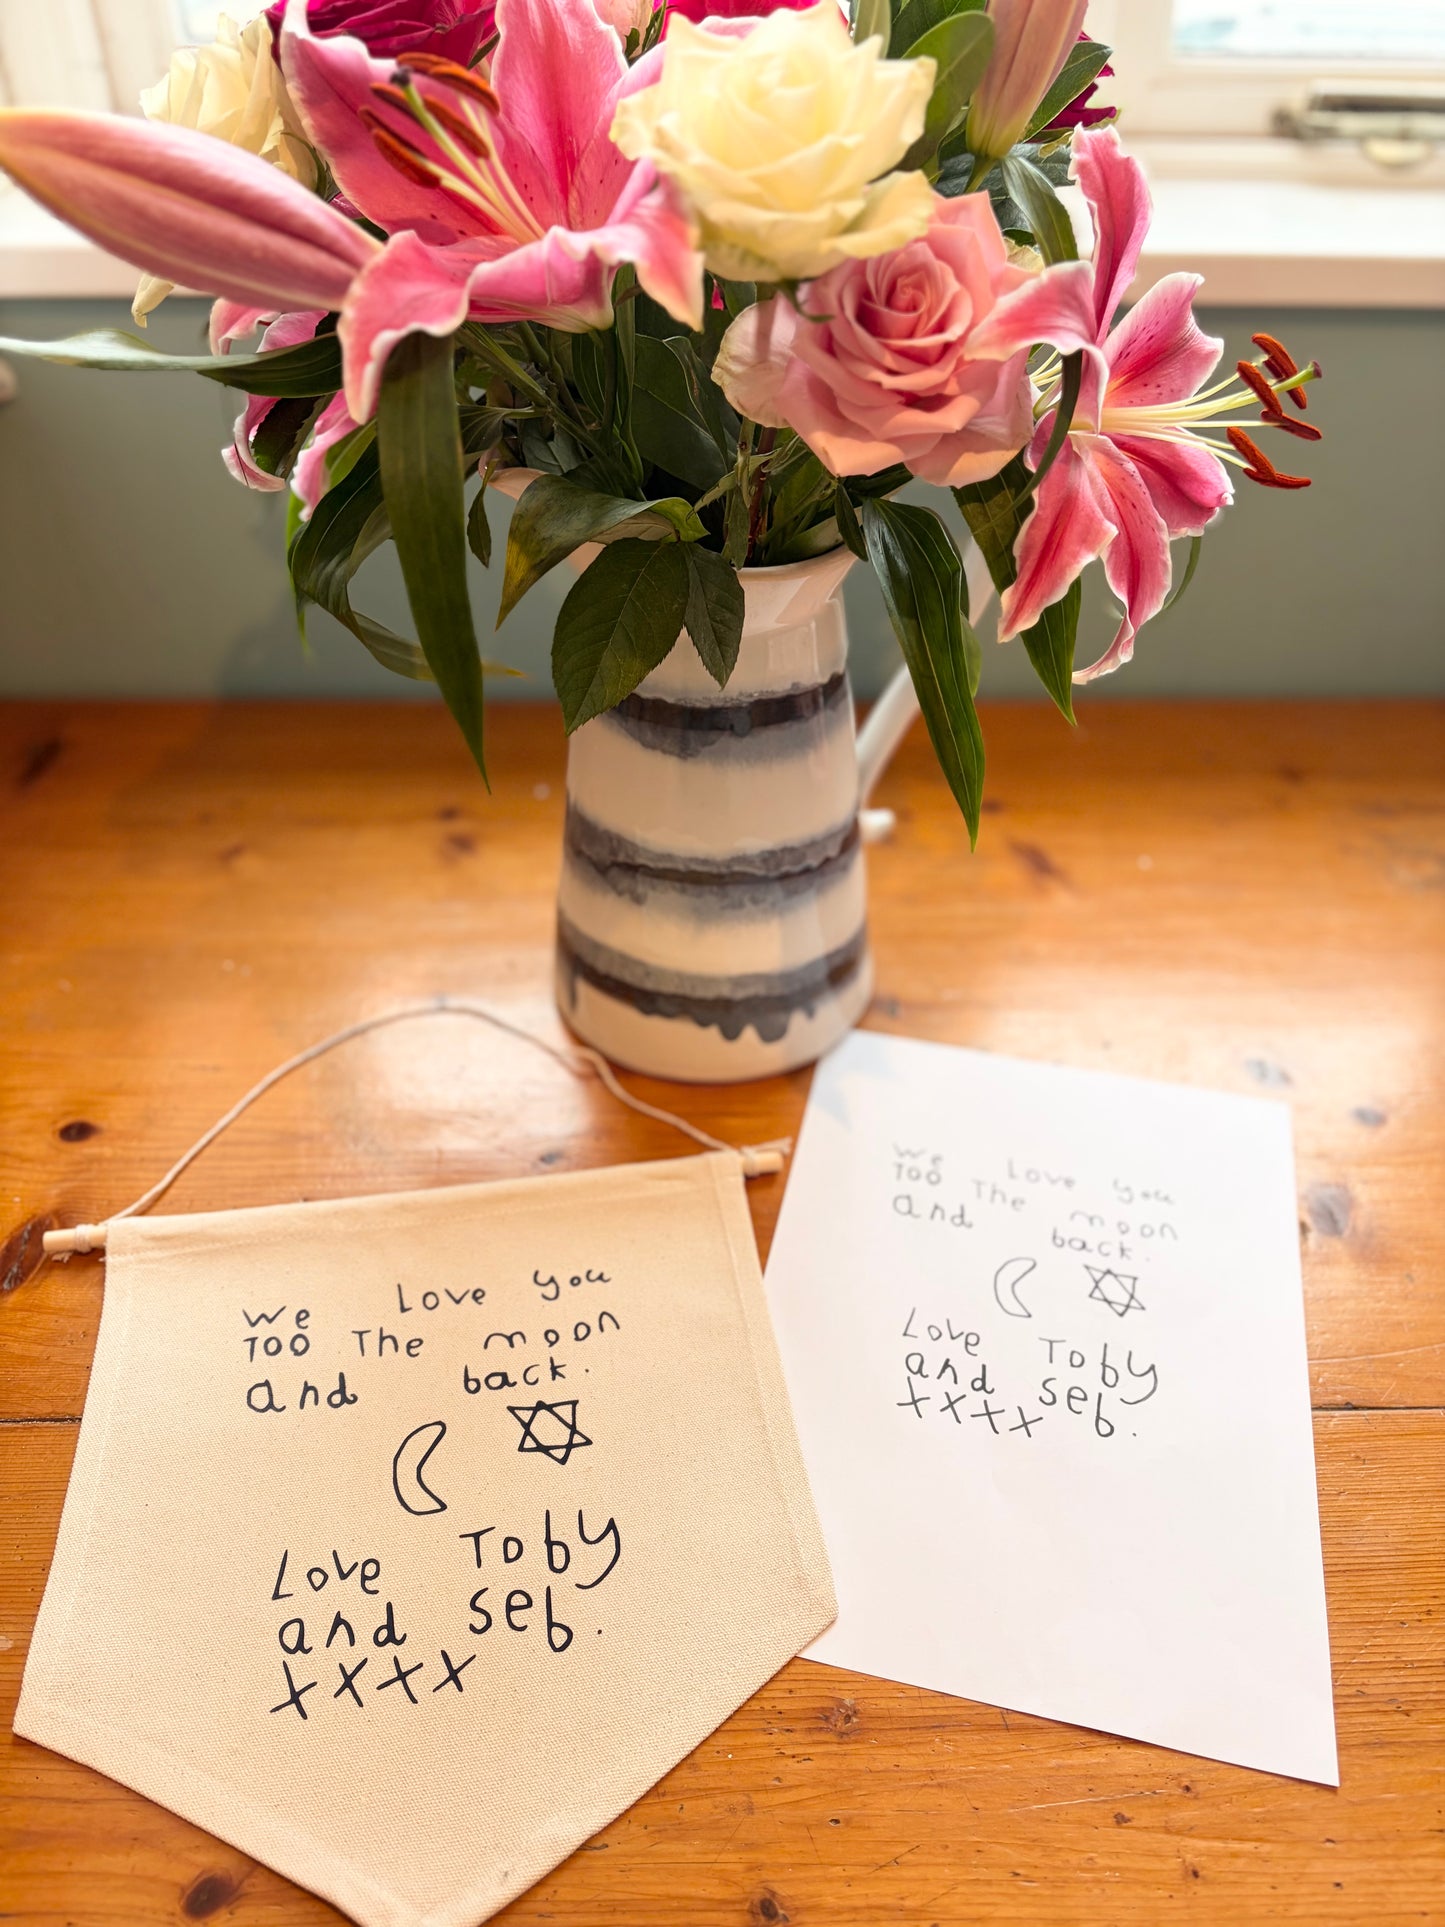 We Love you
Too The moon
and back.
Love Toby
and seb.
xxxx
We Love you
Too The moon
and back.
Love Toby
and seb.
xxxx